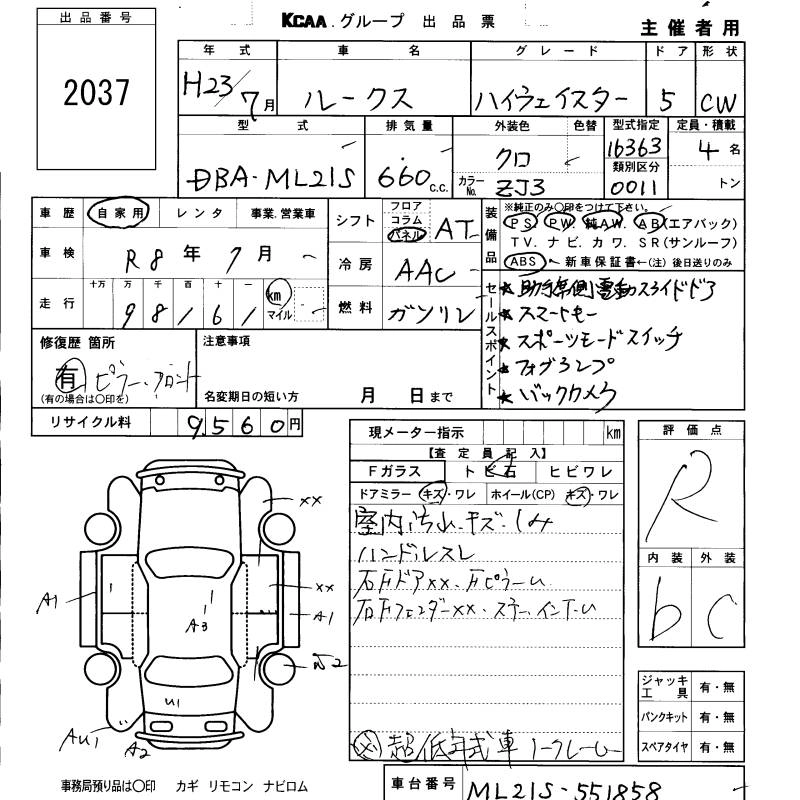 出品番号
2037
KCAA.グループ 出品票
主催者用
年式 車名 グレード ドア 形状
H23/7月 ルークス ハイウェイスター 5 CW
型式 排気量 外装色 色替 型式指定 定員・積載
DBA-ML21S 660c.c. クロ 16363 4名
カラーNo. ZJ3 類別区分 0011 トン
車歴 自家用 レンタ 事業.営業車
車検 R8年7月
走行 十万 万 千 百 十 一
98161 km マイル
シフト フロア コラム パネル AT
冷房 AAC
燃料 ガソリン
装備品
※純正のみ〇印をつけて下さい。
PS. PW. 純AW. AB(エアバック)
TV. ナビ. カワ. SR(サンルーフ)
ABS ←新車保証書←(注) 後日送りのみ
セールスポイント
★助手席側電動スライドドア
★スマートキー
★スポーツモードスイッチ
★フォグランプ
★バックカメラ
修復歴 箇所
有 ピラー、フロント
(有の場合は〇印を)
注意事項
名変期日の短い方 月 日まで
リサイクル料 9,560円
現メーター指示 km
【査定員記入】
Fガラス トビ石 ヒビワレ
ドアミラー キズ・ワレ ホイール(CP) キズ・ワレ
室内汚れ.キズ.シミ
ハンドルスレ
右Fドアxx.FピラーU
右Fフェンダーxx.
評価点
R
内装 外装
b C
xx
xx
A1
A1
A3
U1
AU1
A2
ジャッキ工具 有・無
パンクキット 有・無
スペアタイヤ 有・無
超低年式車 ノークレーム
事務局預り品は〇印 カギ リモコン ナビロム
車台番号 ML21S-551858